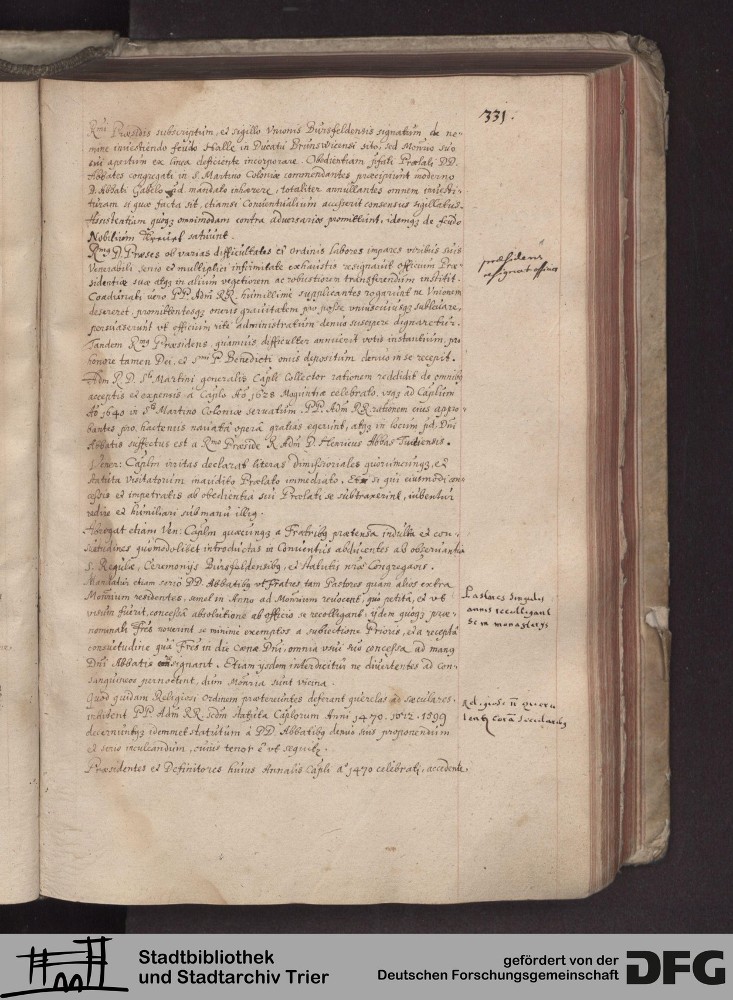 331.
R.mi Præsidis subscriptum, et sigillo Unionis Bursfeldensis signatum de no-
mine investiendo feudo Halle in Ducatu Brunswicensi sito, sed Monrio suo
sui apertum ex linea deficiente incorporare. Obedientiam pfati Prælati DD.
Abbates congregati in S. Martino Coloniæ commendantes præcipiunt moderno
D. Abbati mandato inhærere, totaliter annullantes omnem investi-
turam si quæ facta sit, etiamsi Conventualium accesserit consensus sigillatus.
Assistentiam quoqz omnimodam contra adversarios promittunt, idemqz de feudo
Nobilium statuunt.
R.mus D. Præses ob varias difficultates et Ordinis labores impares viribus suis
Venerabili senio et multiplici infirmitate exhaustis resignavit officium Præ-
sidentiæ suæ atqz in alium vegetiorem ac robustiorem transferendum institit.
Coadunati vero PP. Adm RR. humillime supplicantes rogarunt ne Unionem
desereret, promittentesqz oneris gravitatem pro posse uniuscuiusqz sublevare,
persuaserunt ut officium rite administratum denuo suscipere dignaretur.
Tandem R.mus Præsidens, quamvis difficulter annuerit votis instantium, pro
honore tamen Dei, et S.mi P. Benedicti onus depositum denuo in se recepit.
præsidens
resignat officium
Adm R. D. S.ti Martini generalis Capli Collector rationem reddidit de omnibqz
acceptis et expensis a Caplo Ao 1628 Moguntiæ celebrato, usqz ad Caplum
Ao 1640 in S.to Martino Coloniæ servatum. PP. Adm RR. rationem eius appro-
bantes pro hactenus navata opera gratias egerunt, atqz in locum pd. Dni
Abbatis suffectus est a R.mo Præside R. Adm D. Henricus Abbas Tuitiensis.
Vener: Caplm irritas declarat literas dimissoriales quorumcunqz, et
statuta visitatorum inaudito Prælato immediato. Et si qui eiusmodi con-
cessis et impetratis ab obedientia sui Prælati se subtraxerint, iubentur
redire et humiliari sub manu illiqz.
Abrogat etiam Ven: Caplm quæcunqz a Fratribqz prætensa indulta et con-
suetudines quomodolibet introductas in Conventus abducentes ab observantia
S. Regulæ, Ceremonijs Bursfeldensibqz, et Statutis nræ Congregaõis.
Mandatur etiam serio DD. Abbatibqz ut Fratres tam Pastores quam alios extra
Monrium residentes, semel in Anno ad Monrium revocent, qui petita, et ut
visum fuerit, concessa absolutione ab officio se recolligant, ijdem quoqz præ-
nominati Frẽs noverint se minime exemptos a subiectione Prioris, et a recepta
consuetudine qua Frẽs in die cœnæ Dni, omnia usui suo concessa, ad manqz
Dni Abbatis consignant. Etiam ysdem interdicitur ne divertentes ad con-
sanguineos pernoctent, dum Monria sunt vicina.
Pastores singulis
annis recolligant
se in monasterijs
Quod quidam Religiosi Ordinem prætereuntes deferant querelas ad sæculares,
indolent PP. Adm RR. scdm statuta Caplorum Anni 1470. 1512. 1599
decernentqz idemmet statutum a DD. Abbatibqz denuo suis proponendum
et serio inculcandum, cuius tenor ẽ ut sequitr.
Religiosi ñ queru
lentr corã secularibqz
Præsidentes et Definitores huius Annalis Capli ao 1470 celebrati, accedente
Stadtbibliothek
und Stadtarchiv Trier
gefördert von der
Deutschen Forschungsgemeinschaft
DFG